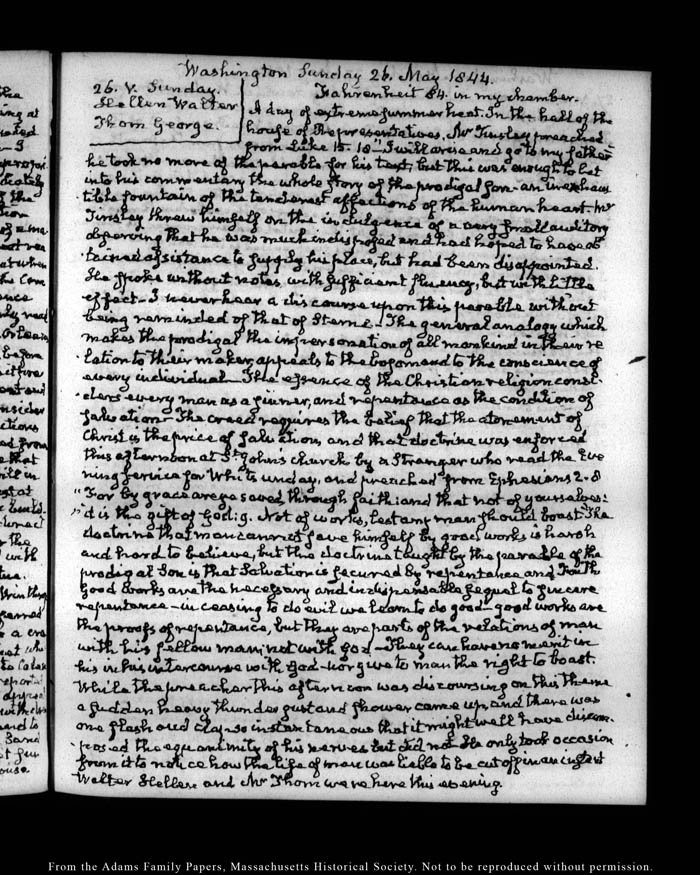 Washington Sunday 26. May 1844.
26. V. Sunday.
Hellen Walter
Thom George.
Fahrenheit 84. in my chamber.
A day of extreme summer heat. In the hall of the
house of Representatives, Mr Tinsley preached
from Luke 15. 18. I will arise and go to my father
he took no more of the parable for his text, but this was enough to let
into his commentary the whole story of the prodigal son. an inexhaus
tible fountain of the tenderest affections of the human heart. Mr
Tinsley threw himself on the indulgence of a very small auditory
observing that he was much indisposed and had hoped to have ob
tained assistance to supply his place, but had been disappointed.
He spoke without notes, with sufficient fluency, but with little
effect. I never hear a discourse upon this parable without
being reminded of that of Sterne. The general analogy which
makes the prodigal the impersonation of all mankind in their re
lation to their maker, appeals to the bosom and to the conscience of
every individual. The essence of the Christian religion consi
ders every man as a sinner, and repentance as the condition of
salvation. The creed requires the belief that the atonement of
Christ is the price of salvation, and that doctrine was enforced
this afternoon at St John's church by a Stranger who read the Eve
ning service for Whitsunday, and preached from Ephesians 2. 8
"For by grace are ye saved through faith: and that not of yourselves:
" it is the gift of God: 9. Not of works, lest any man should boast. The
doctrine that man cannot save himself by good works is harsh
and hard to believe, but the doctrine taught by the parable of the
prodigal Son is that Salvation is secured by repentance and Faith
Good works are the necessary and indispensable sequel to sincere
repentance – in ceasing to do evil we learn to do good – good works are
the proofs of repentance, but they are parts of the relations of man
with his fellow man, not with God – They can have no merit in
his in his intercourse with God – nor give to man the right to boast.
While the preacher this afternoon was discoursing on this theme
a sudden heavy thunder gust and shower came up, and there was
one flash and clap so instantaneous that it might well have discom
posed the equanimity of his nerves but did not. He only took occasion
from it to notice how the life of man was liable to be cut off in an instant
Walter Hellen and Mr Thom were here this evening.
From the Adams Family Papers, Massachusetts Historical Society. Not to be reproduced without permission.